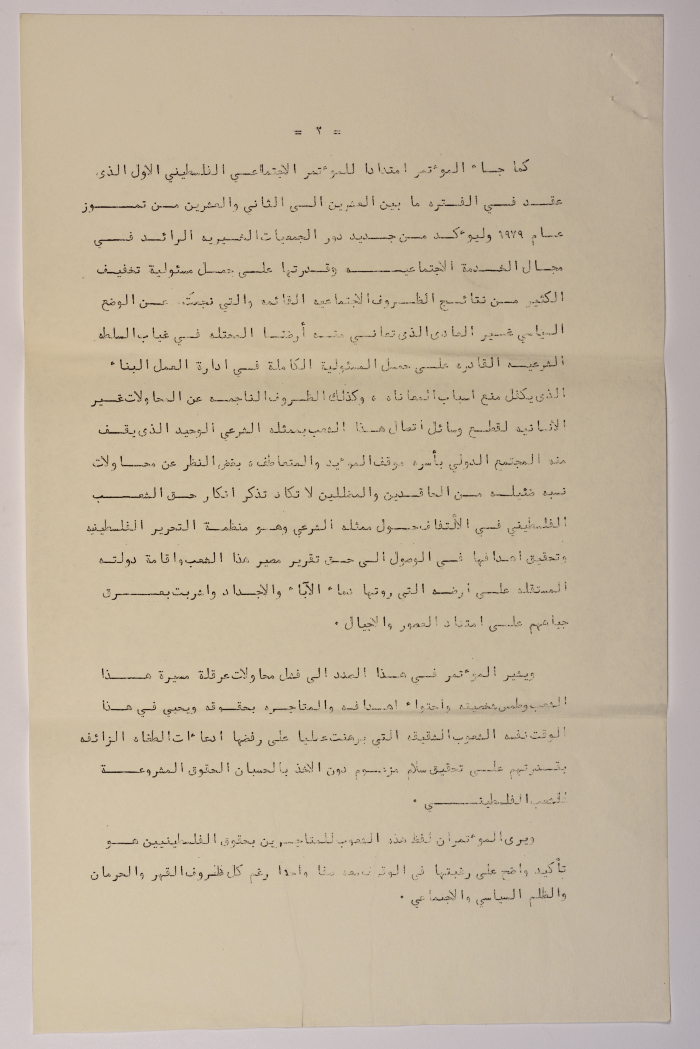 = ٢ =
كما جاء المؤتمر امتدادا للمؤتمر الاجتماعي الفلسطيني الاول الذي
عقد في الفتره ما بين العشرين الى الثاني والعشرين من تموز
عام ١٩٧٩ وليؤكد من جديد دور الجمعيات الخيريه الرائد في
مجال الخدمة الاجتماعيه وقدرتها على حمل مسئولية تخفيف
الكثير من نتائج الظروف الاجتماعيه القائمه والتي نجمت عن الوضع
السياسي غير العادي الذي تعاني منه أرضنا المحتله في غياب السلطه
الشرعيه القادره على حمل المسئولية الكاملة في ادارة العمل البناء
الذي يكفل منع اسباب المعاناه ، وكذلك الظروف الناجمه عن المحاولات غير
الانسانيه لقطع وسائل أتصال هذا الشعب بممثله الشرعي الوحيد الذي يقف
منه المجتمع الدولي بأسره موقف المؤيد والمتعاطف ، بغض النظر عن محاولات
نسبه ضئيله من الحاقدين والمضللين لا تكاد تذكر انكار حق الشعب
الفلسطيني في الألتفاف حول ممثله الشرعي وهو منظمة التحرير الفلسطينيه
وتحقيق أهدافها في الوصول الى حق تقرير مصير هذا الشعب واقامة دولته
المستقله على أرضه التي روتها دماء الآباء والاجداد واشربت بعرق
جباههم على امتداد العصور والاجيال .
ويشير المؤتمر في هذا الصدد الى فشل محاولات عرقلة مسيرة هذا
الشعب وطمس شخصيته واحتواء اهدافه والمتاجره بحقوقه ويحيي في هذا
الوقت نفسه الشعوب الشقيقه التي برهنت عمليا على رفضها ادعاءات الطغاه الزائفه
بقدرتهم على تحقيق سلام مزعوم دون الاخذ بالحسبان الحقوق المشروعة
للشعب الفلسطيني .
ويرى المؤتمر ان لفظ هذه الشعوب للمتاجرين بحقوق الفلسطينيين هو
تأكيد واضح على رغبتها في معه صفا واحدا رغم كل ظروف القهر والحرمان
والظلم السياسي والاجتماعي .